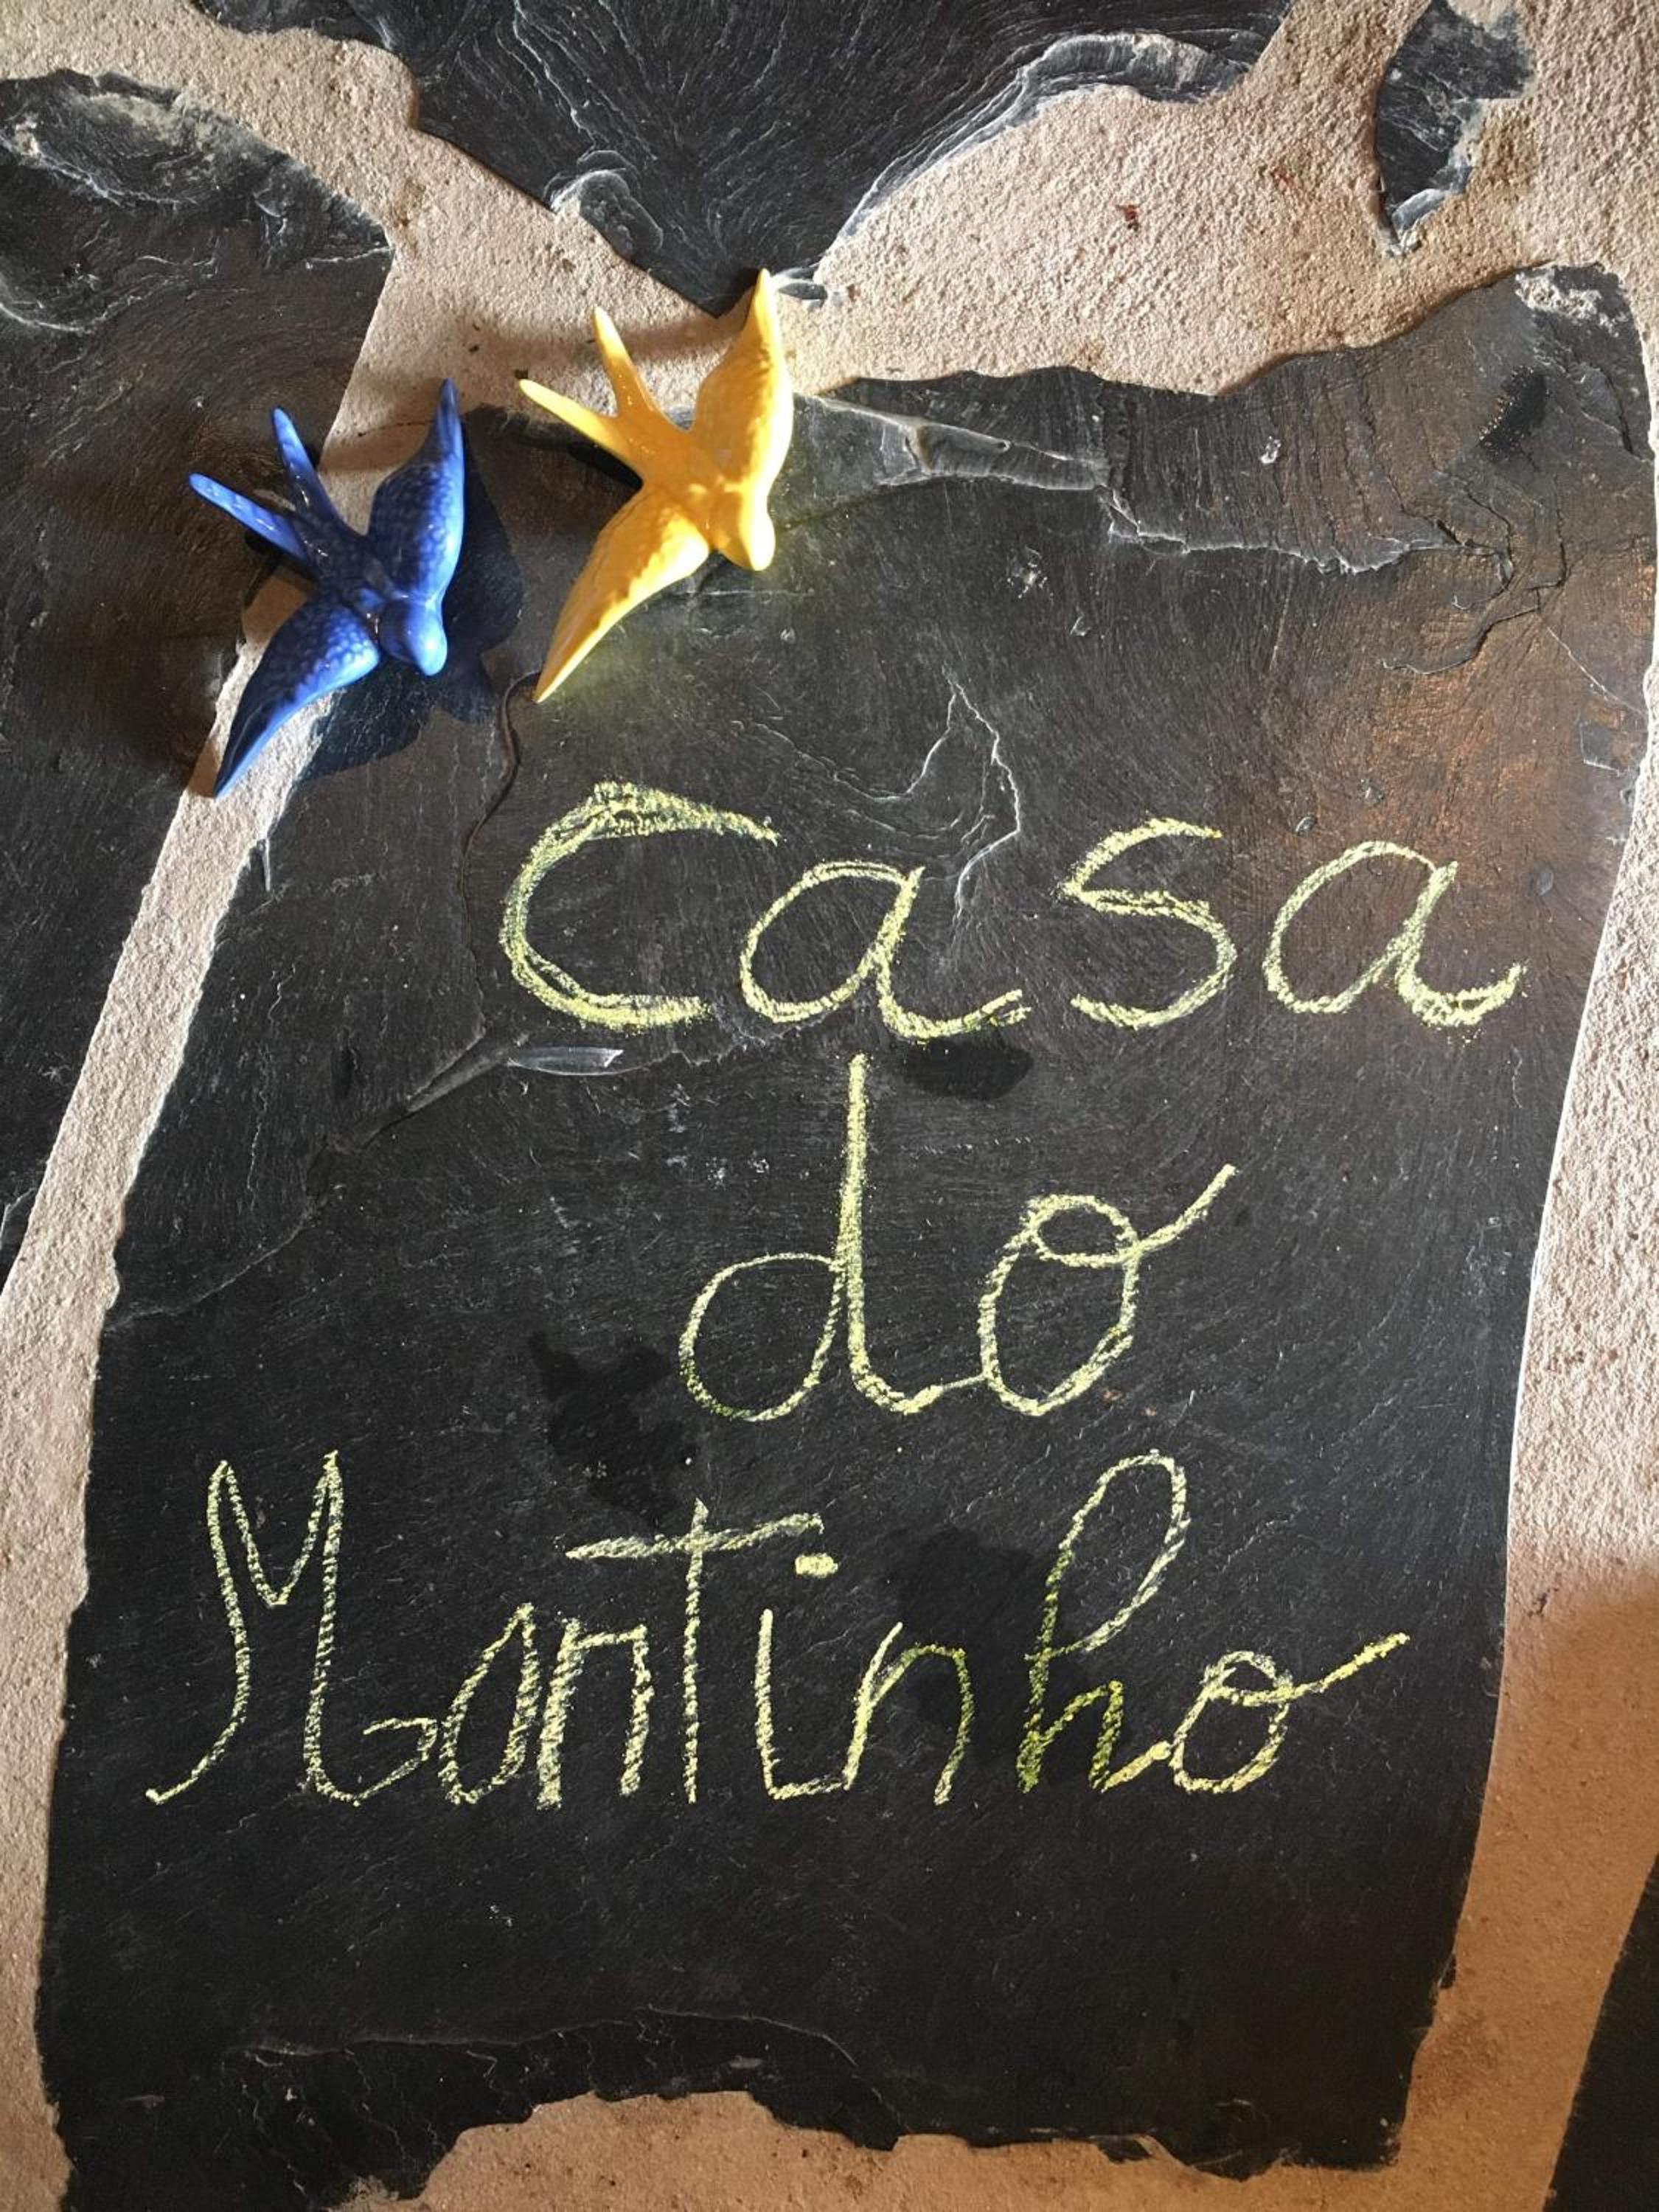 Casa
do
Montinho